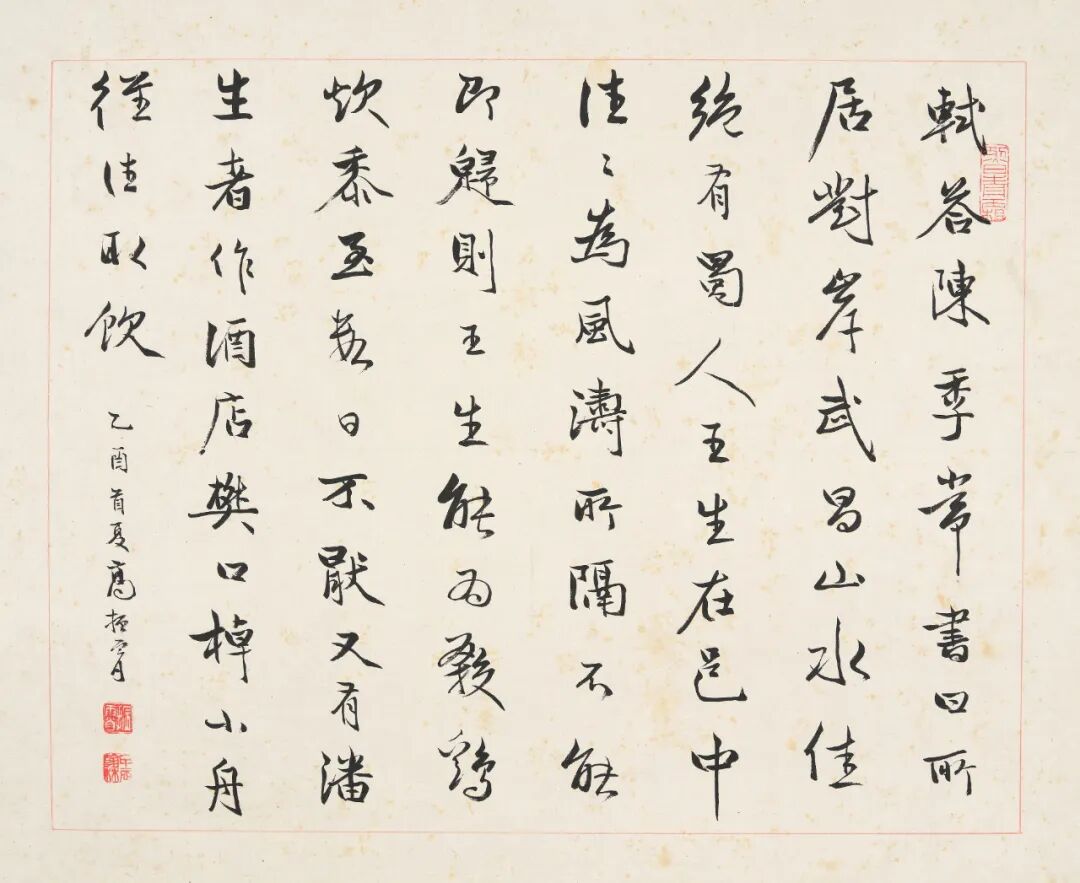 軾答陳季常書曰所
居對岸武昌山水佳
絶有蜀人王生在邑中
往〻為風濤所隔不能
即歸則王生能為殺鷄
炊黍至數日不厭又有潘
生者作酒店樊口棹小舟
徑往取飲
乙酉首夏高振霄